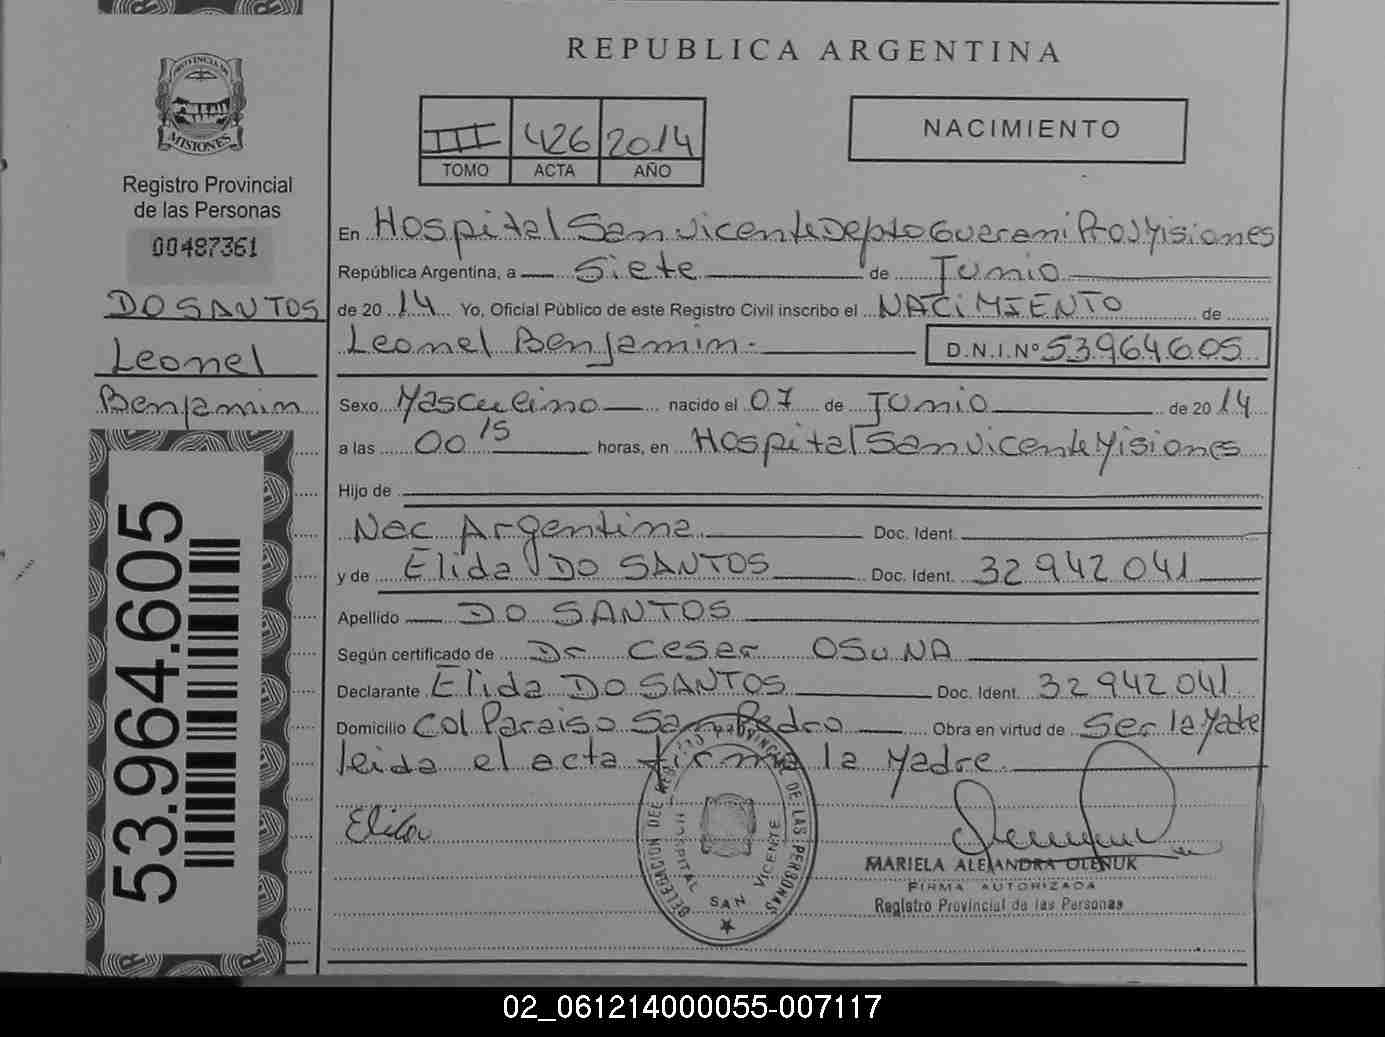 REPUBLICA ARGENTINA
PROVINCIA DE
MISIONES
Registro Provincial
de las Personas
00487361
DO SANTOS
Leonel
Benjamin
53.964.605
III 426 2014
TOMO ACTA AÑO
NACIMIENTO
En Hospital San vicente Depto Guarani Prov Misiones
República Argentina, a Siete de Junio
de 20 14 Yo, Oficial Público de este Registro Civil inscribo el NACIMIENTO de
Leonel Benjamin.- D.N.I.Nº 53.964.605
Sexo Masculino nacido el 07 de Junio de 20 14
a las 00 15 horas, en Hospital San vicente Misiones
Hijo de
Nac Argentina Doc. Ident.
y de Elida DO SANTOS Doc. Ident. 32 942 041
Apellido DO SANTOS
Según certificado de Dr Cesar OSUNA
Declarante Elida DO SANTOS Doc. Ident. 32 942 041
Domicilio Col Paraiso San Pedro Obra en virtud de Ser la Madre
leida el acta firma la Madre.
Elida
DELEGACION DEL REGISTRO PROVINCIAL DE LAS PERSONAS
HOSPITAL SAN VICENTE
MARIELA ALEJANDRA OLENUK
FIRMA AUTORIZADA
Registro Provincial de las Personas
02_061214000055-007117